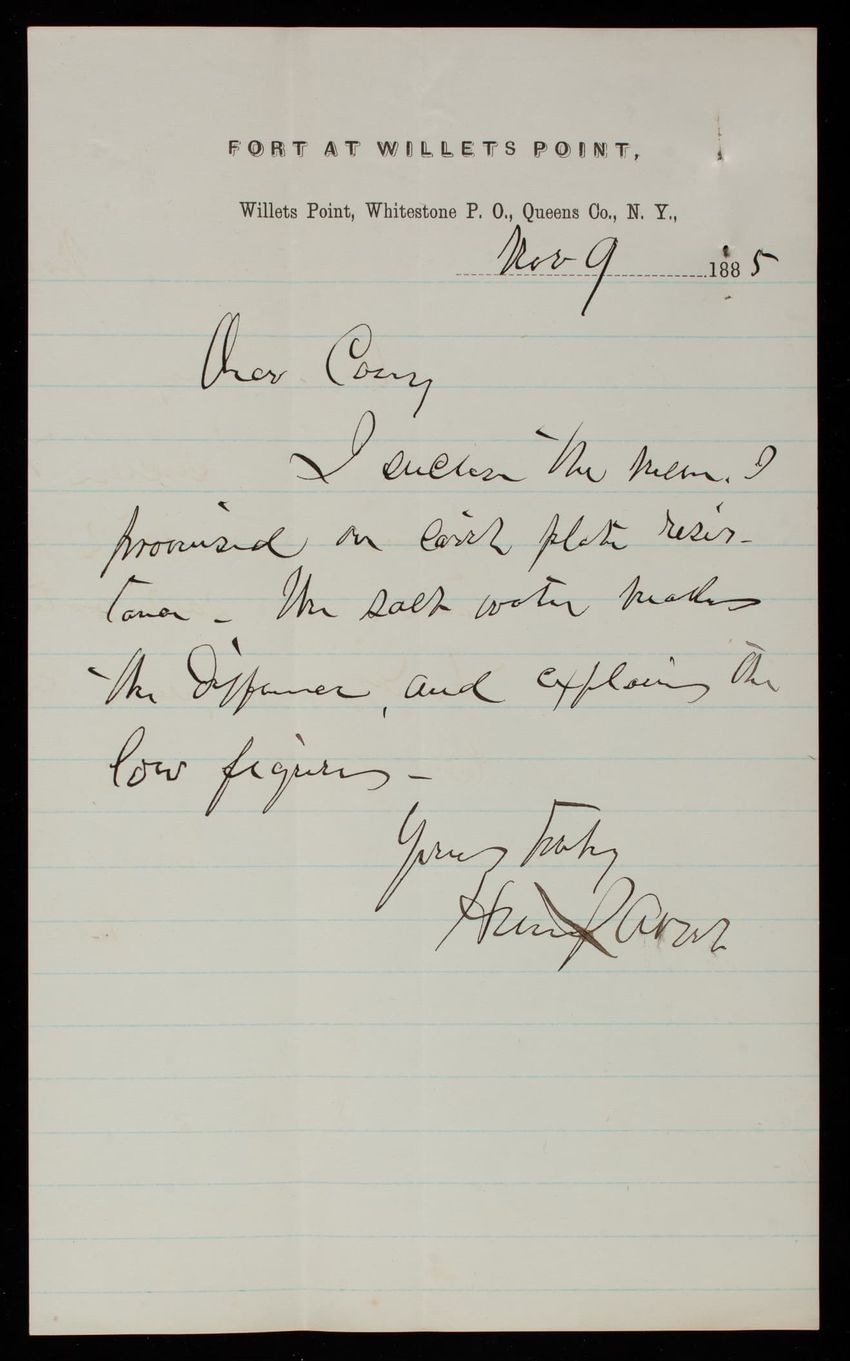 FORT AT WILLETS POINT,
Willets Point, Whitestone P. O., Queens Co., N. Y.,
Nov 9 1885
Dear Casey
I enclose the mem. I
promised on earth plate resis-
tance - The salt water makes
the difference, and explains the
low figures -
Yours truly
Henry L Abbot